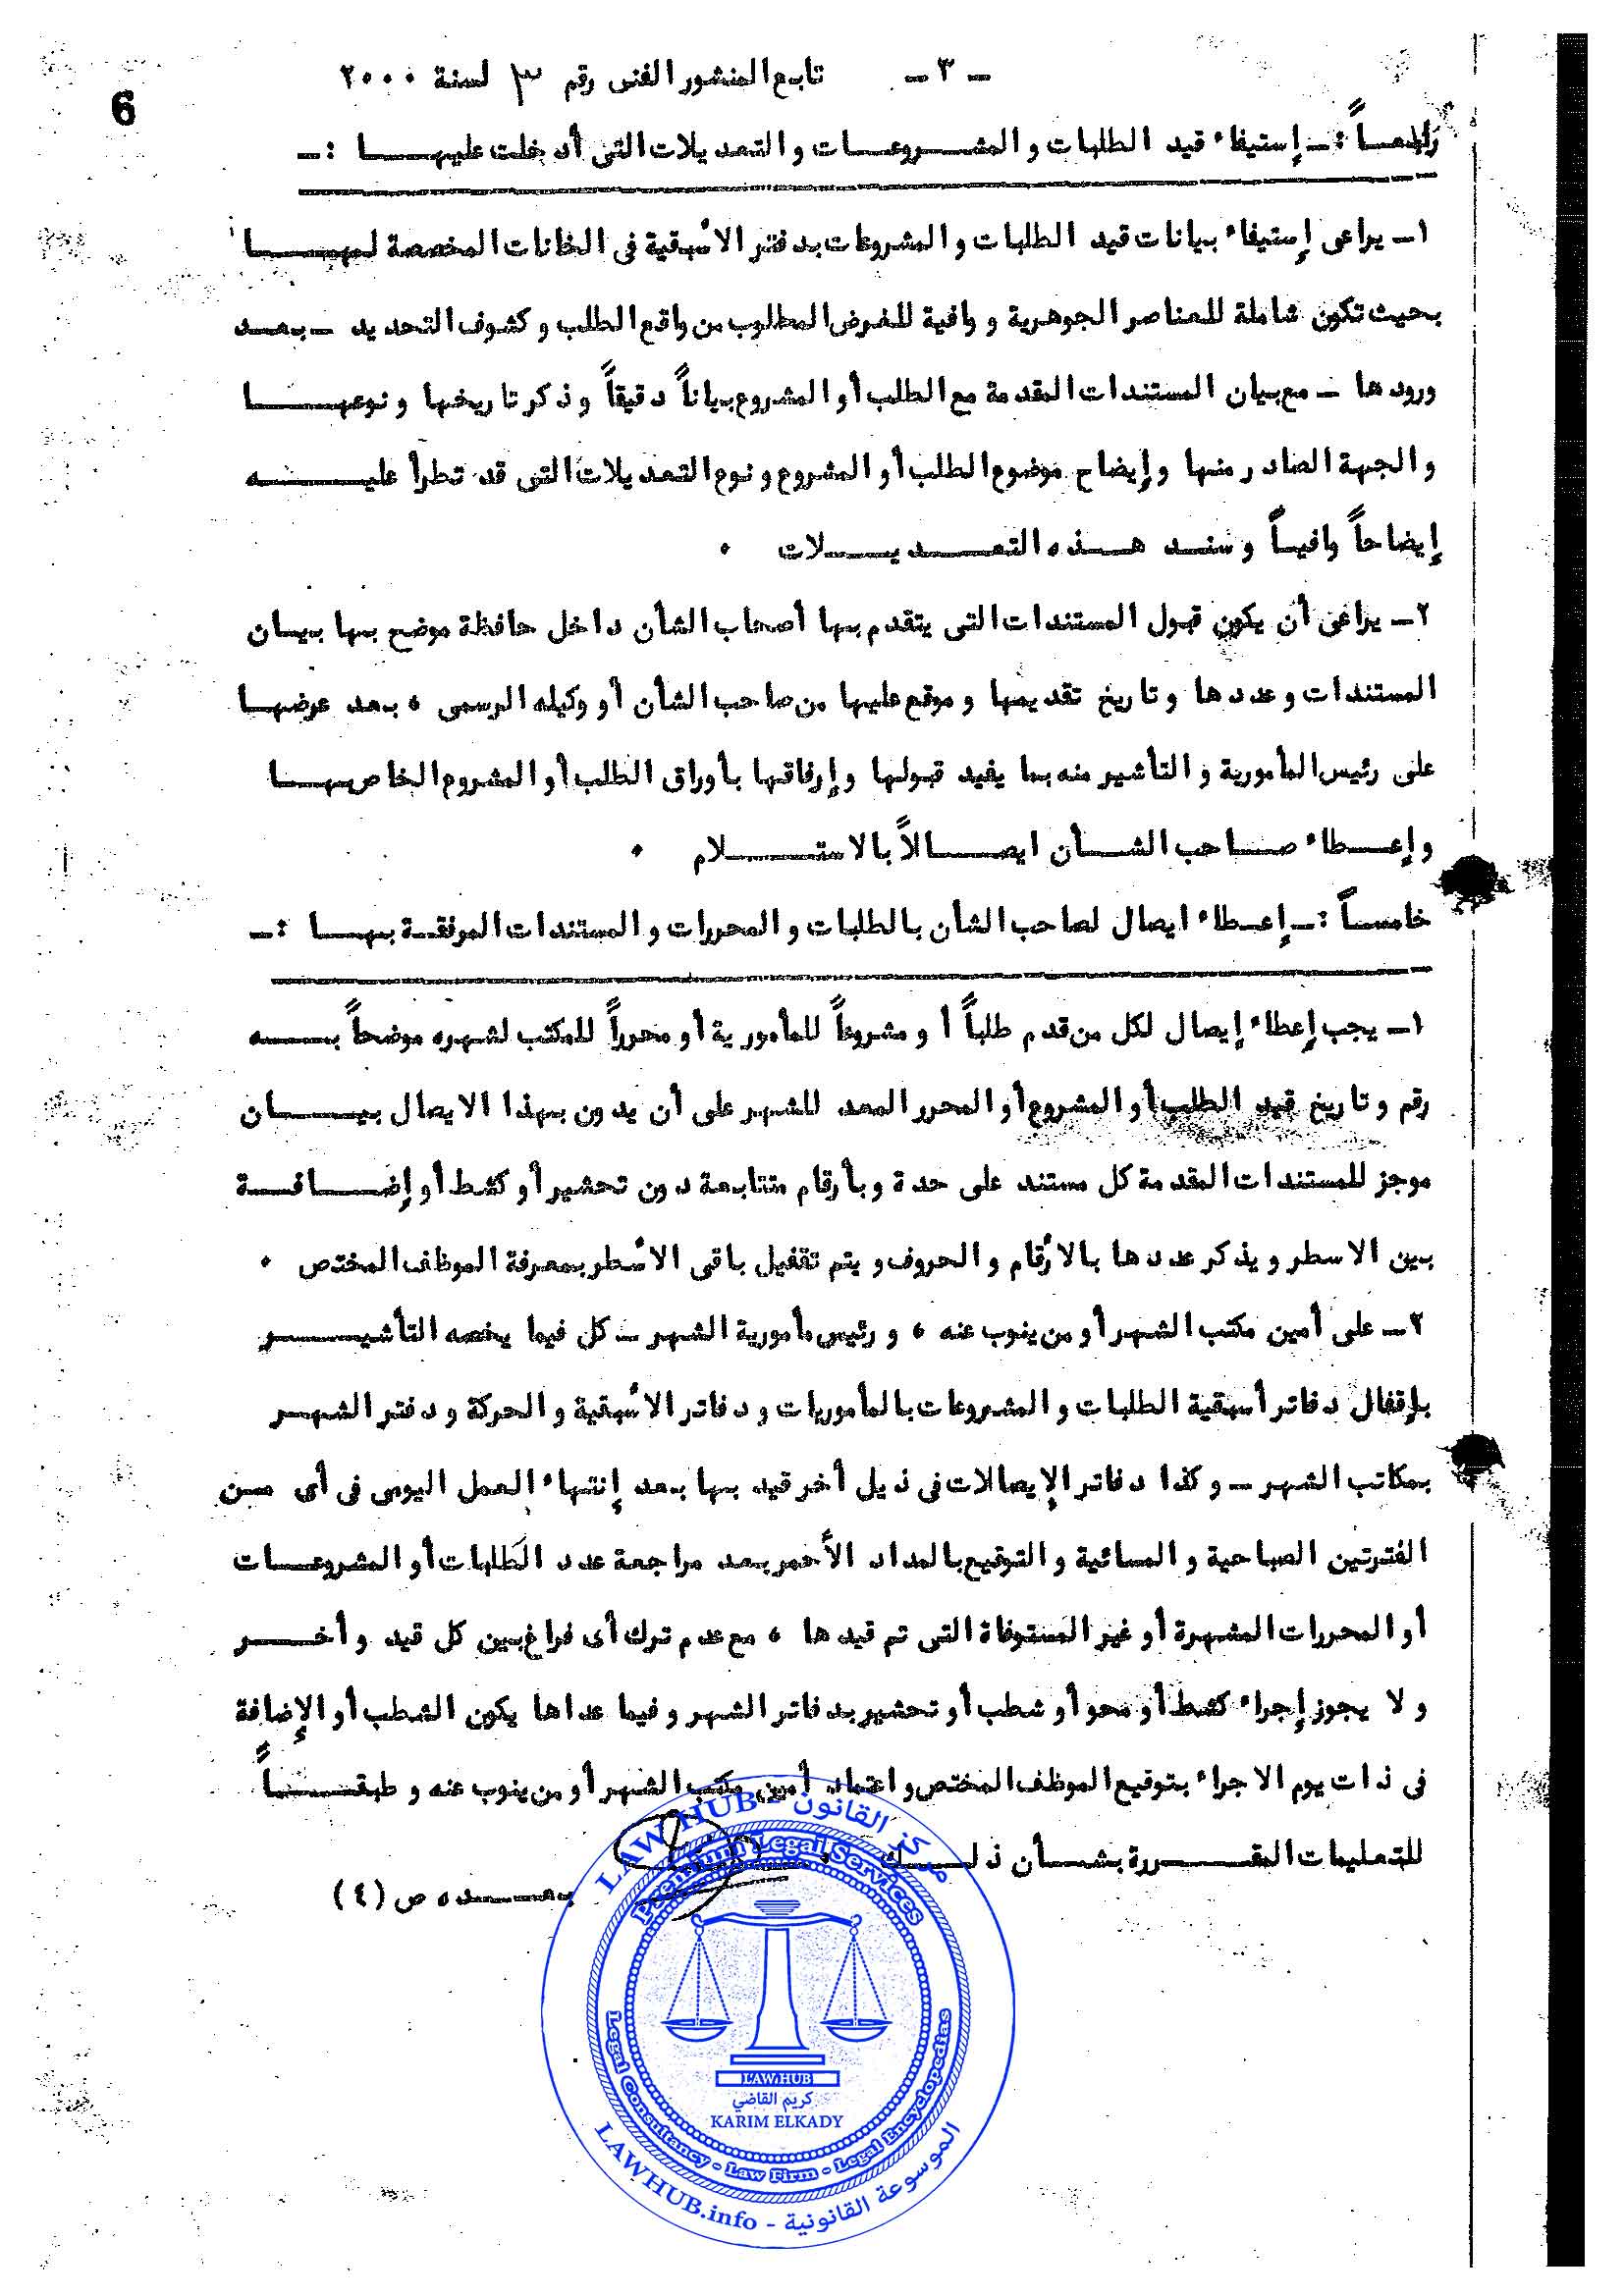 - ٣ - تابع المنشور الفنى رقم ٣ لسنة ٢٠٠٠
6
رابعاً :- إستيفاء قيد الطلبات والمشروعات والتعديلات التى أدخلت عليها :-
١- يراعى إستيفاء بيانات قيد الطلبات والمشروعات بدفتر الأسبقية فى الخانات المخصصة لها
بحيث تكون شاملة للعناصر الجوهرية ووافية للغرض المطلوب من واقع الطلب وكشوف التحديد - بعد
ورودها - مع بيان المستندات المقدمة مع الطلب أو المشروع بياناً دقيقاً وذكر تاريخها ونوعها
والجهة الصادر منها وإيضاح موضوع الطلب أو المشروع ونوع التعديلات التى قد تطرأ عليه
إيضاحاً وافياً وسند هذه التعديلات .
٢- يراعى أن يكون قبول المستندات التى يتقدم بها أصحاب الشأن داخل حافظة موضح بها بيان
المستندات وعددها وتاريخ تقديمها وموقع عليها من صاحب الشأن أو وكيله الرسمى ، بعد عرضها
على رئيس المأمورية والتأشير منه بما يفيد قبولها وإرفاقها بأوراق الطلب أو المشروع الخاص بها
وإعطاء صاحب الشأن ايصالاً بالاستلام .
خامساً :- إعطاء ايصال لصاحب الشأن بالطلبات والمحررات والمستندات الموفقة بها :-
١- يجب إعطاء إيصال لكل من قدم طلباً أو مشروعاً للمأمورية أو محرراً للمكتب لشهره موضحاً به
رقم وتاريخ قيد الطلب أو المشروع أو المحرر المعد للشهر على أن يدون بهذا الايصال بيان
موجز للمستندات المقدمة كل مستند على حدة وبأرقام متتابعة دون تحشير أو كشط أو إضافة
بين الاسطر ويذكر عددها بالأرقام والحروف ويتم تقفيل باقى الأسطر بمعرفة الموظف المختص .
٢- على أمين مكتب الشهر أو من ينوب عنه ، ورئيس مأمورية الشهر - كل فيما يخصه التأشير
بإقفال دفاتر أسبقية الطلبات والمشروعات بالمأموريات ودفاتر الأسبقية والحركة ودفتر الشهر
بمكاتب الشهر - وكذا دفاتر الإيصالات فى ذيل أخر قيد بها بعد إنتهاء العمل اليومى فى أى من
الفترتين الصباحية والمسائية والتوقيع بالمداد الأحمر بعد مراجعة عدد الطلبات أو المشروعات
أو المحررات المشهرة أو غير المستوفاة التى تم قيدها ، مع عدم ترك أى فراغ بين كل قيد وأخر
ولا يجوز إجراء كشط أو محو أو شطب أو تحشير بدفاتر الشهر وفيما عداها يكون الشطب أو الإضافة
فى ذات يوم الاجراء بتوقيع الموظف المختص واعتماد أمين مكتب الشهر أو من ينوب عنه وطبقاً
للتعليمات المقررة بشأن ذلك .
بعده ص (٤)
LAW HUB - مركز القانون
Premium Legal Services
LAW HUB
كريم القاضي
KARIM ELKADY
Legal Consultancy - Law Firm - Legal Encyclopedias
LAWHUB.info - الموسوعة القانونية